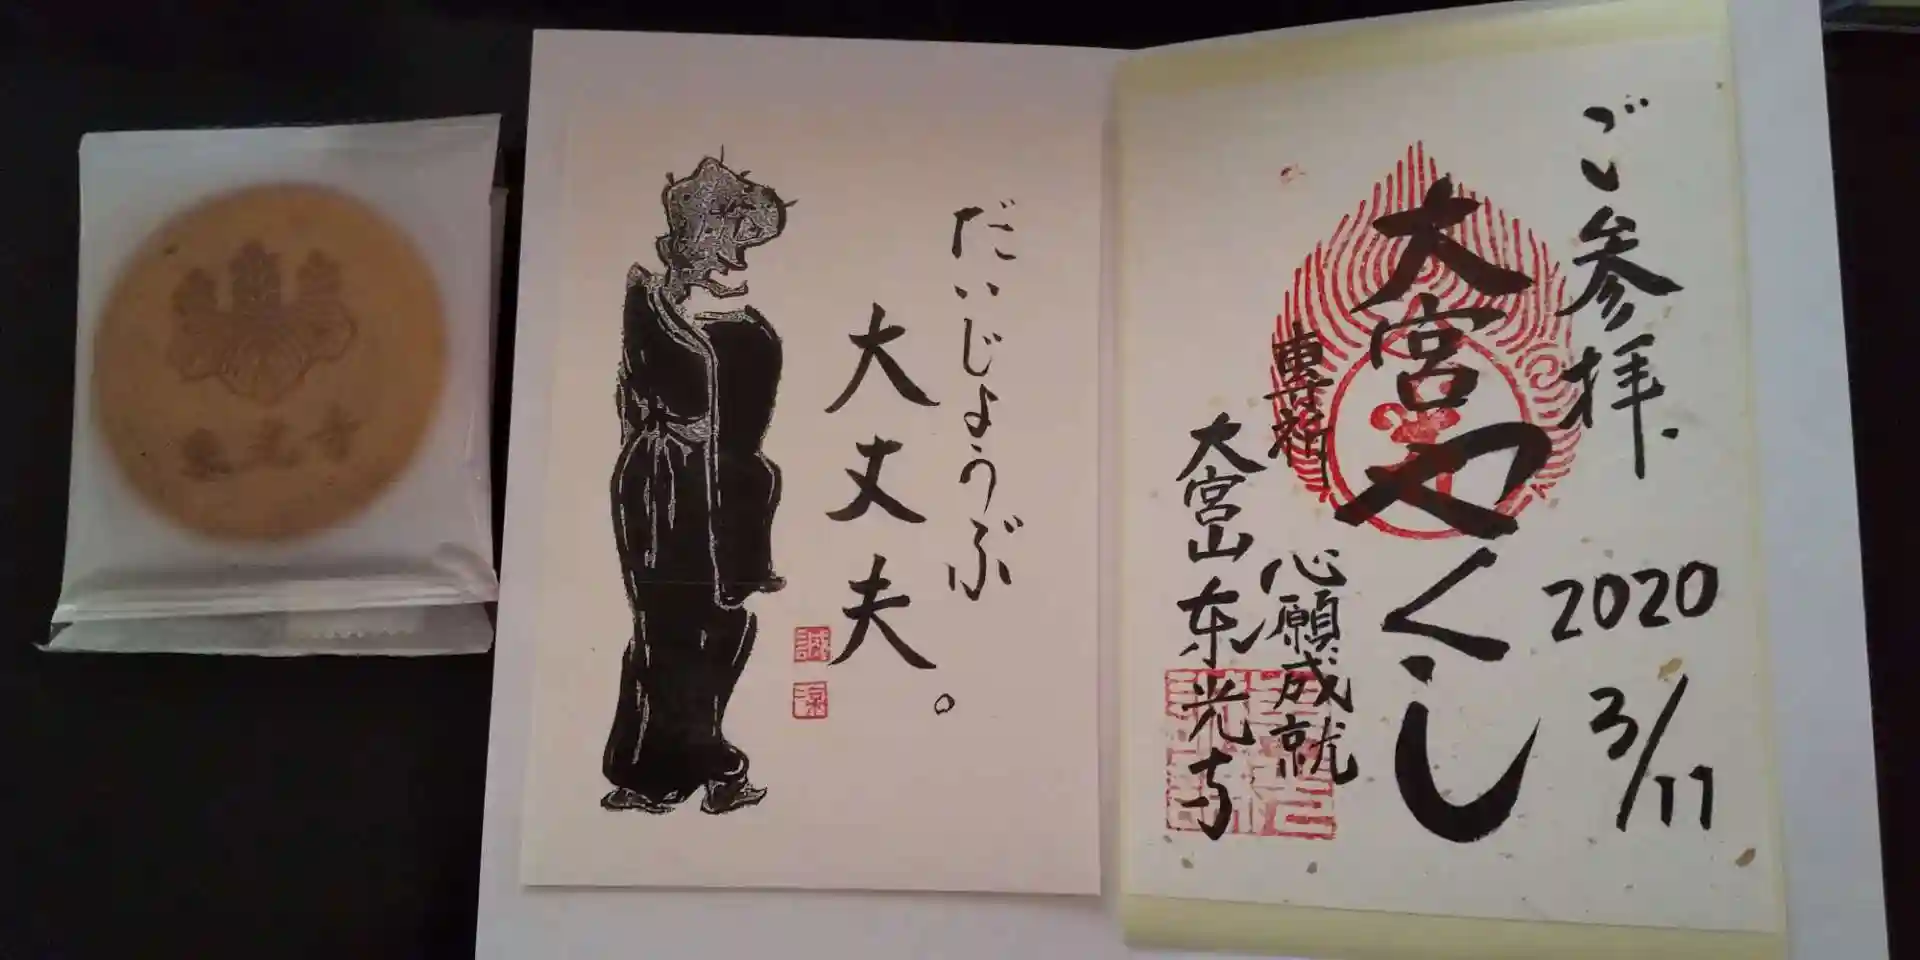 東光寺
だいじょうぶ
大丈夫。
誠
涼
ご参拝
2020
3/11
大宮やくし
専祈
心願成就
大宮山東光寺